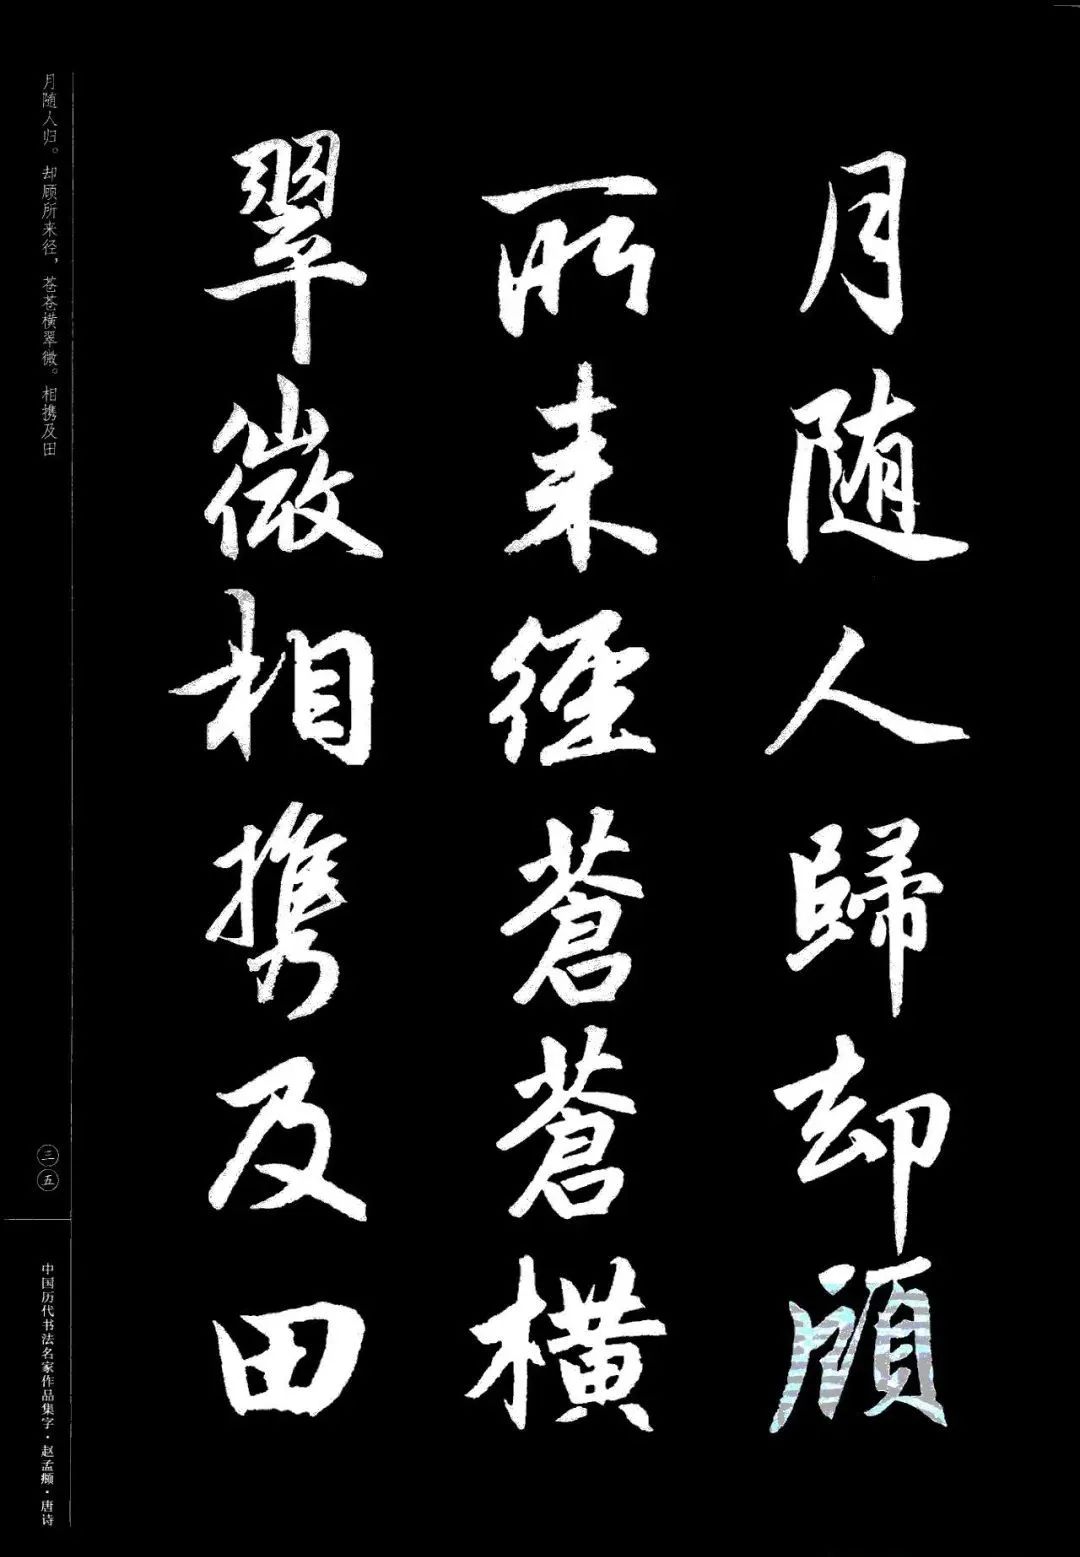 月随人歸却顧
所来徑蒼蒼橫
翠微相携及田
月随人归。却顾所来径，苍苍横翠微。相携及田
三五
中国历代书法名家作品集字·赵孟頫·唐诗